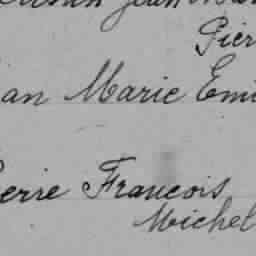 Jean Mar
Pier
an Marie Emi
ierre Francois
Michel